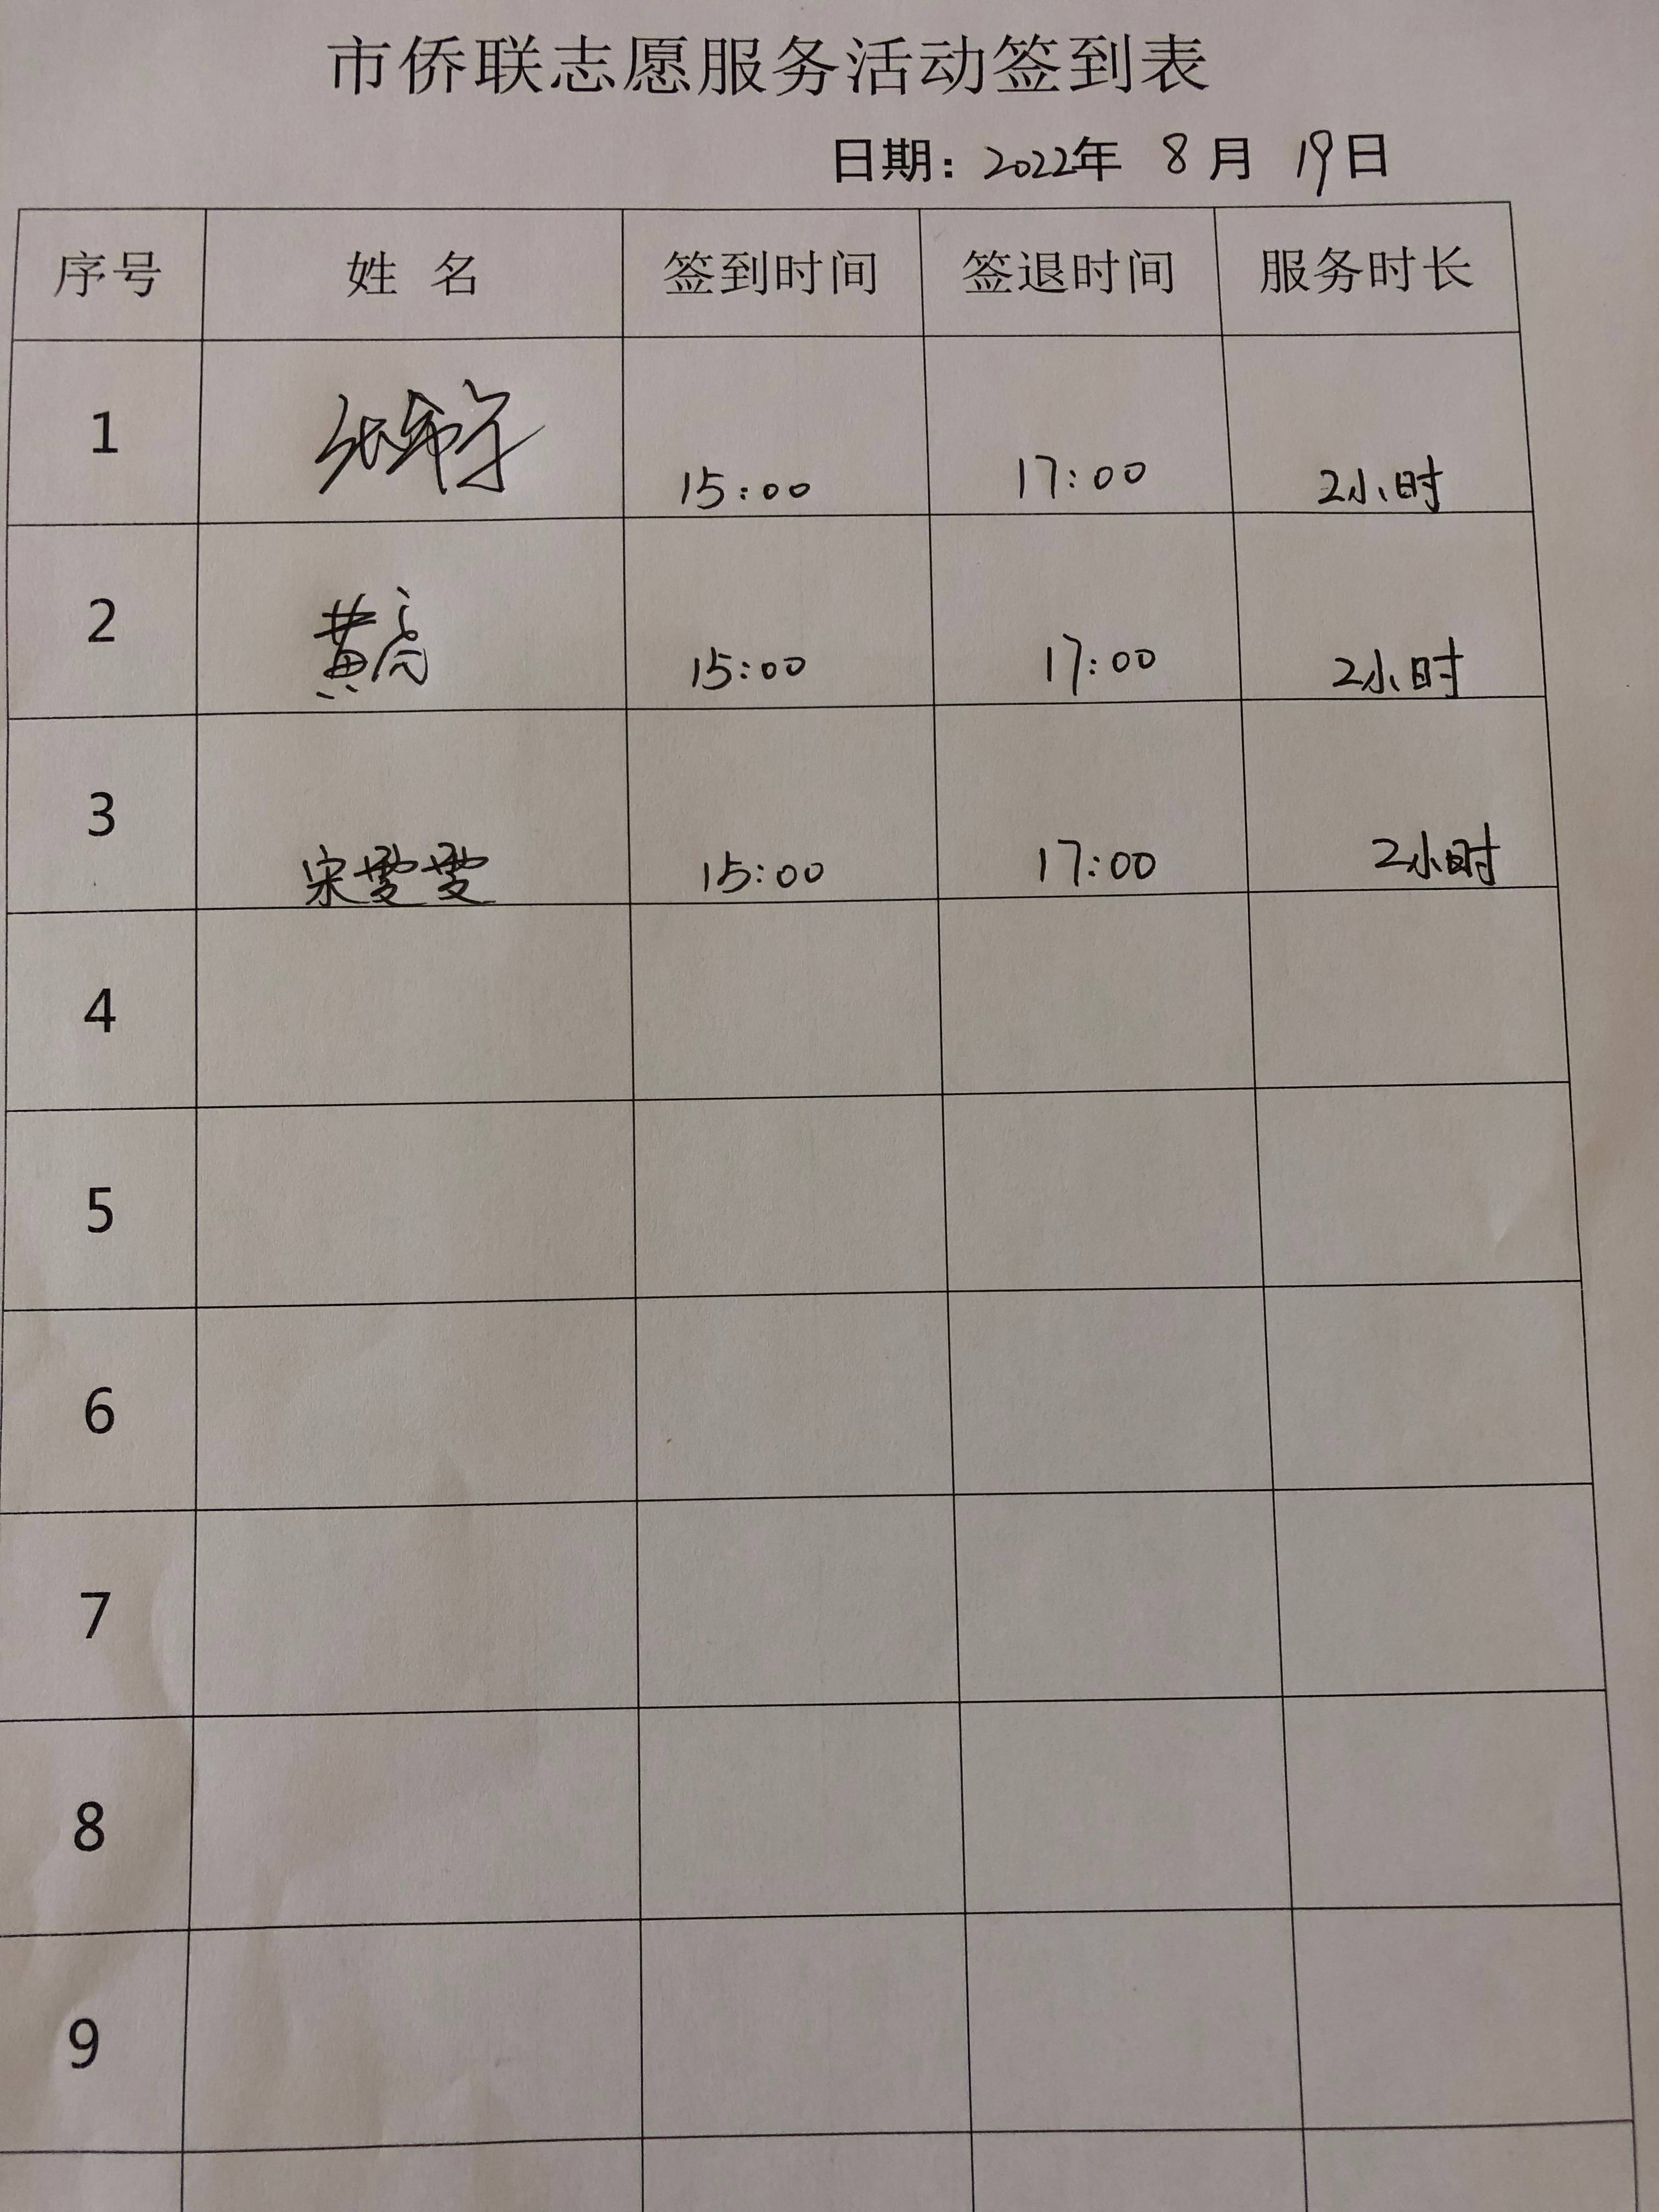 市侨联志愿服务活动签到表
日期：2022年 8月 19日
序号 姓名 签到时间 签退时间 服务时长
1 15:00 17:00 2小时
2 黄亮 15:00 17:00 2小时
3 宋雯雯 15:00 17:00 2小时
4
5
6
7
8
9